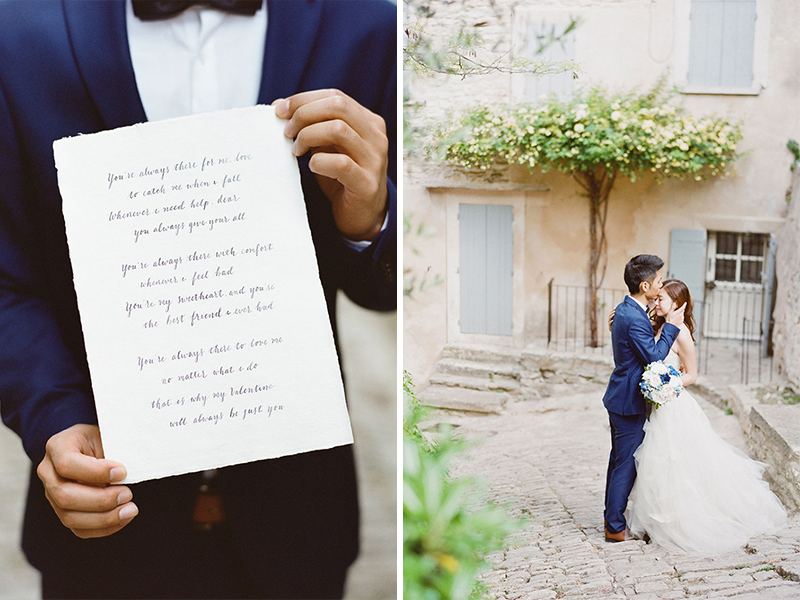 You're always there for me, love
to catch me when i fall
Whenever i need help, dear
you always give your all
You're always there with comfort
whenever i feel bad
You're my sweetheart, and you're
the best friend i ever had
You're always there to love me
no matter what i do
that is why my Valentine
will always be just you